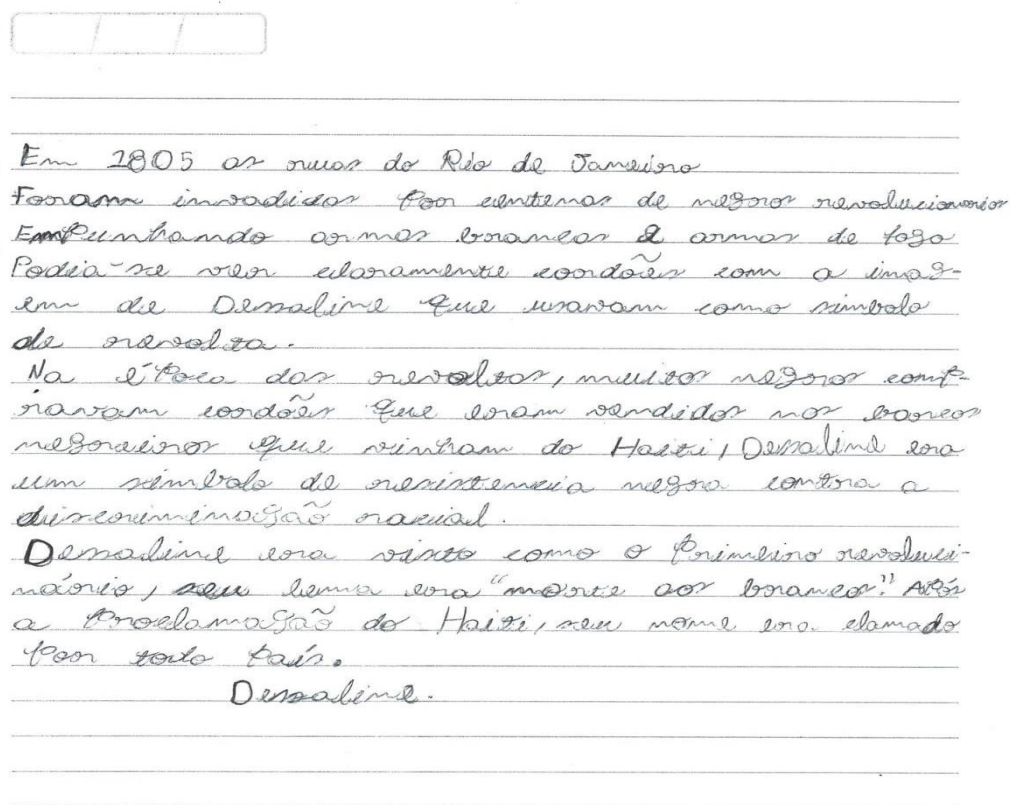 Em 1805 as ruas do Rio de Janeiro
Foram invadidas Por centenas de negros revolucionários
EmPunhando armas brancas e armas de fogo
Podia-se ver claramente cordões com a imag-
em de Dessaline que usavam como simbolo
de revolta.
Na éPoca das revoltas, muitos negros comp-
ravam cordões que eram vendidos nos barcos
negreiros que vinham do Haiti, Dessaline era
um simbolo de resistencia negra contra a
discriminação racial.
Dessaline era visto como o Primeiro revoluci-
nário, seu lema era "morte aos brancos". APós
a Proclamação do Haiti, seu nome era clamado
Por todo País.
Dessaline.